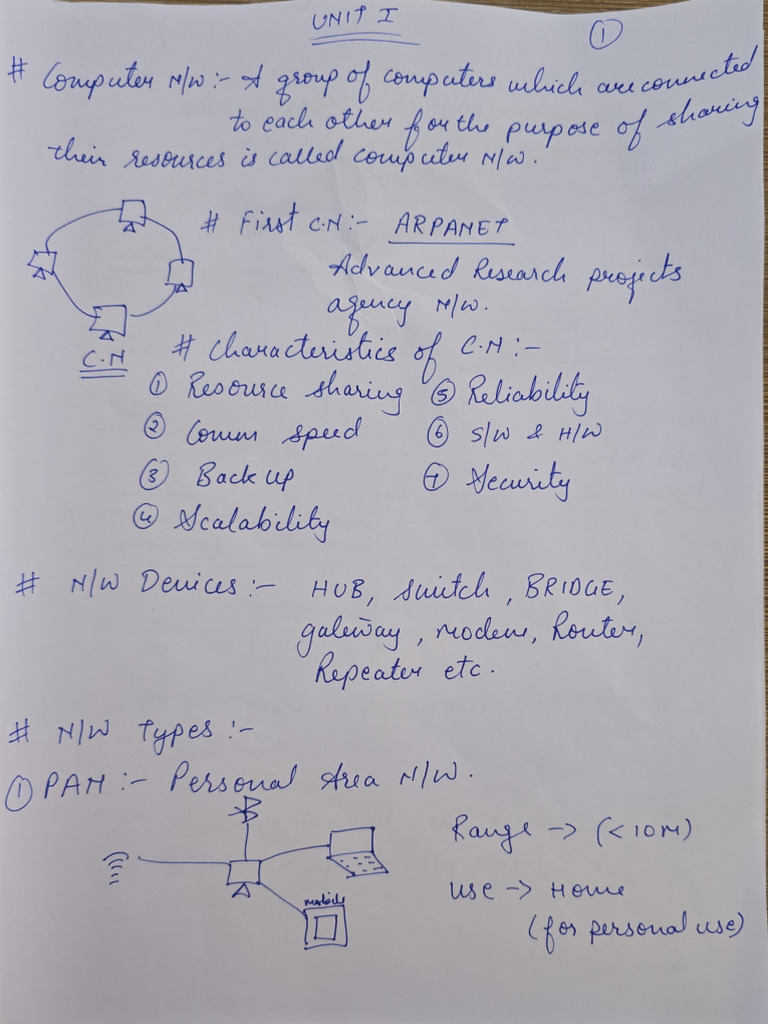 UNIT I
①
# Computer N/W :- A group of computers which are connected
to each other for the purpose of sharing
their resources is called computer N/W.
# First C.N :- ARPANET
Advanced Research projects
agency N/W.
C.N
# Characteristics of C.N :-
① Resource sharing ⑤ Reliability
② Comm speed ⑥ S/W & H/W
③ Back up ⑦ Security
④ Scalability
# N/W Devices :- HUB, switch, BRIDGE,
gateway, modem, Router,
Repeater etc.
# N/W Types :-
① PAN :- Personal Area N/W.
Range -> (<10M)
mobile
use -> Home
(for personal use)